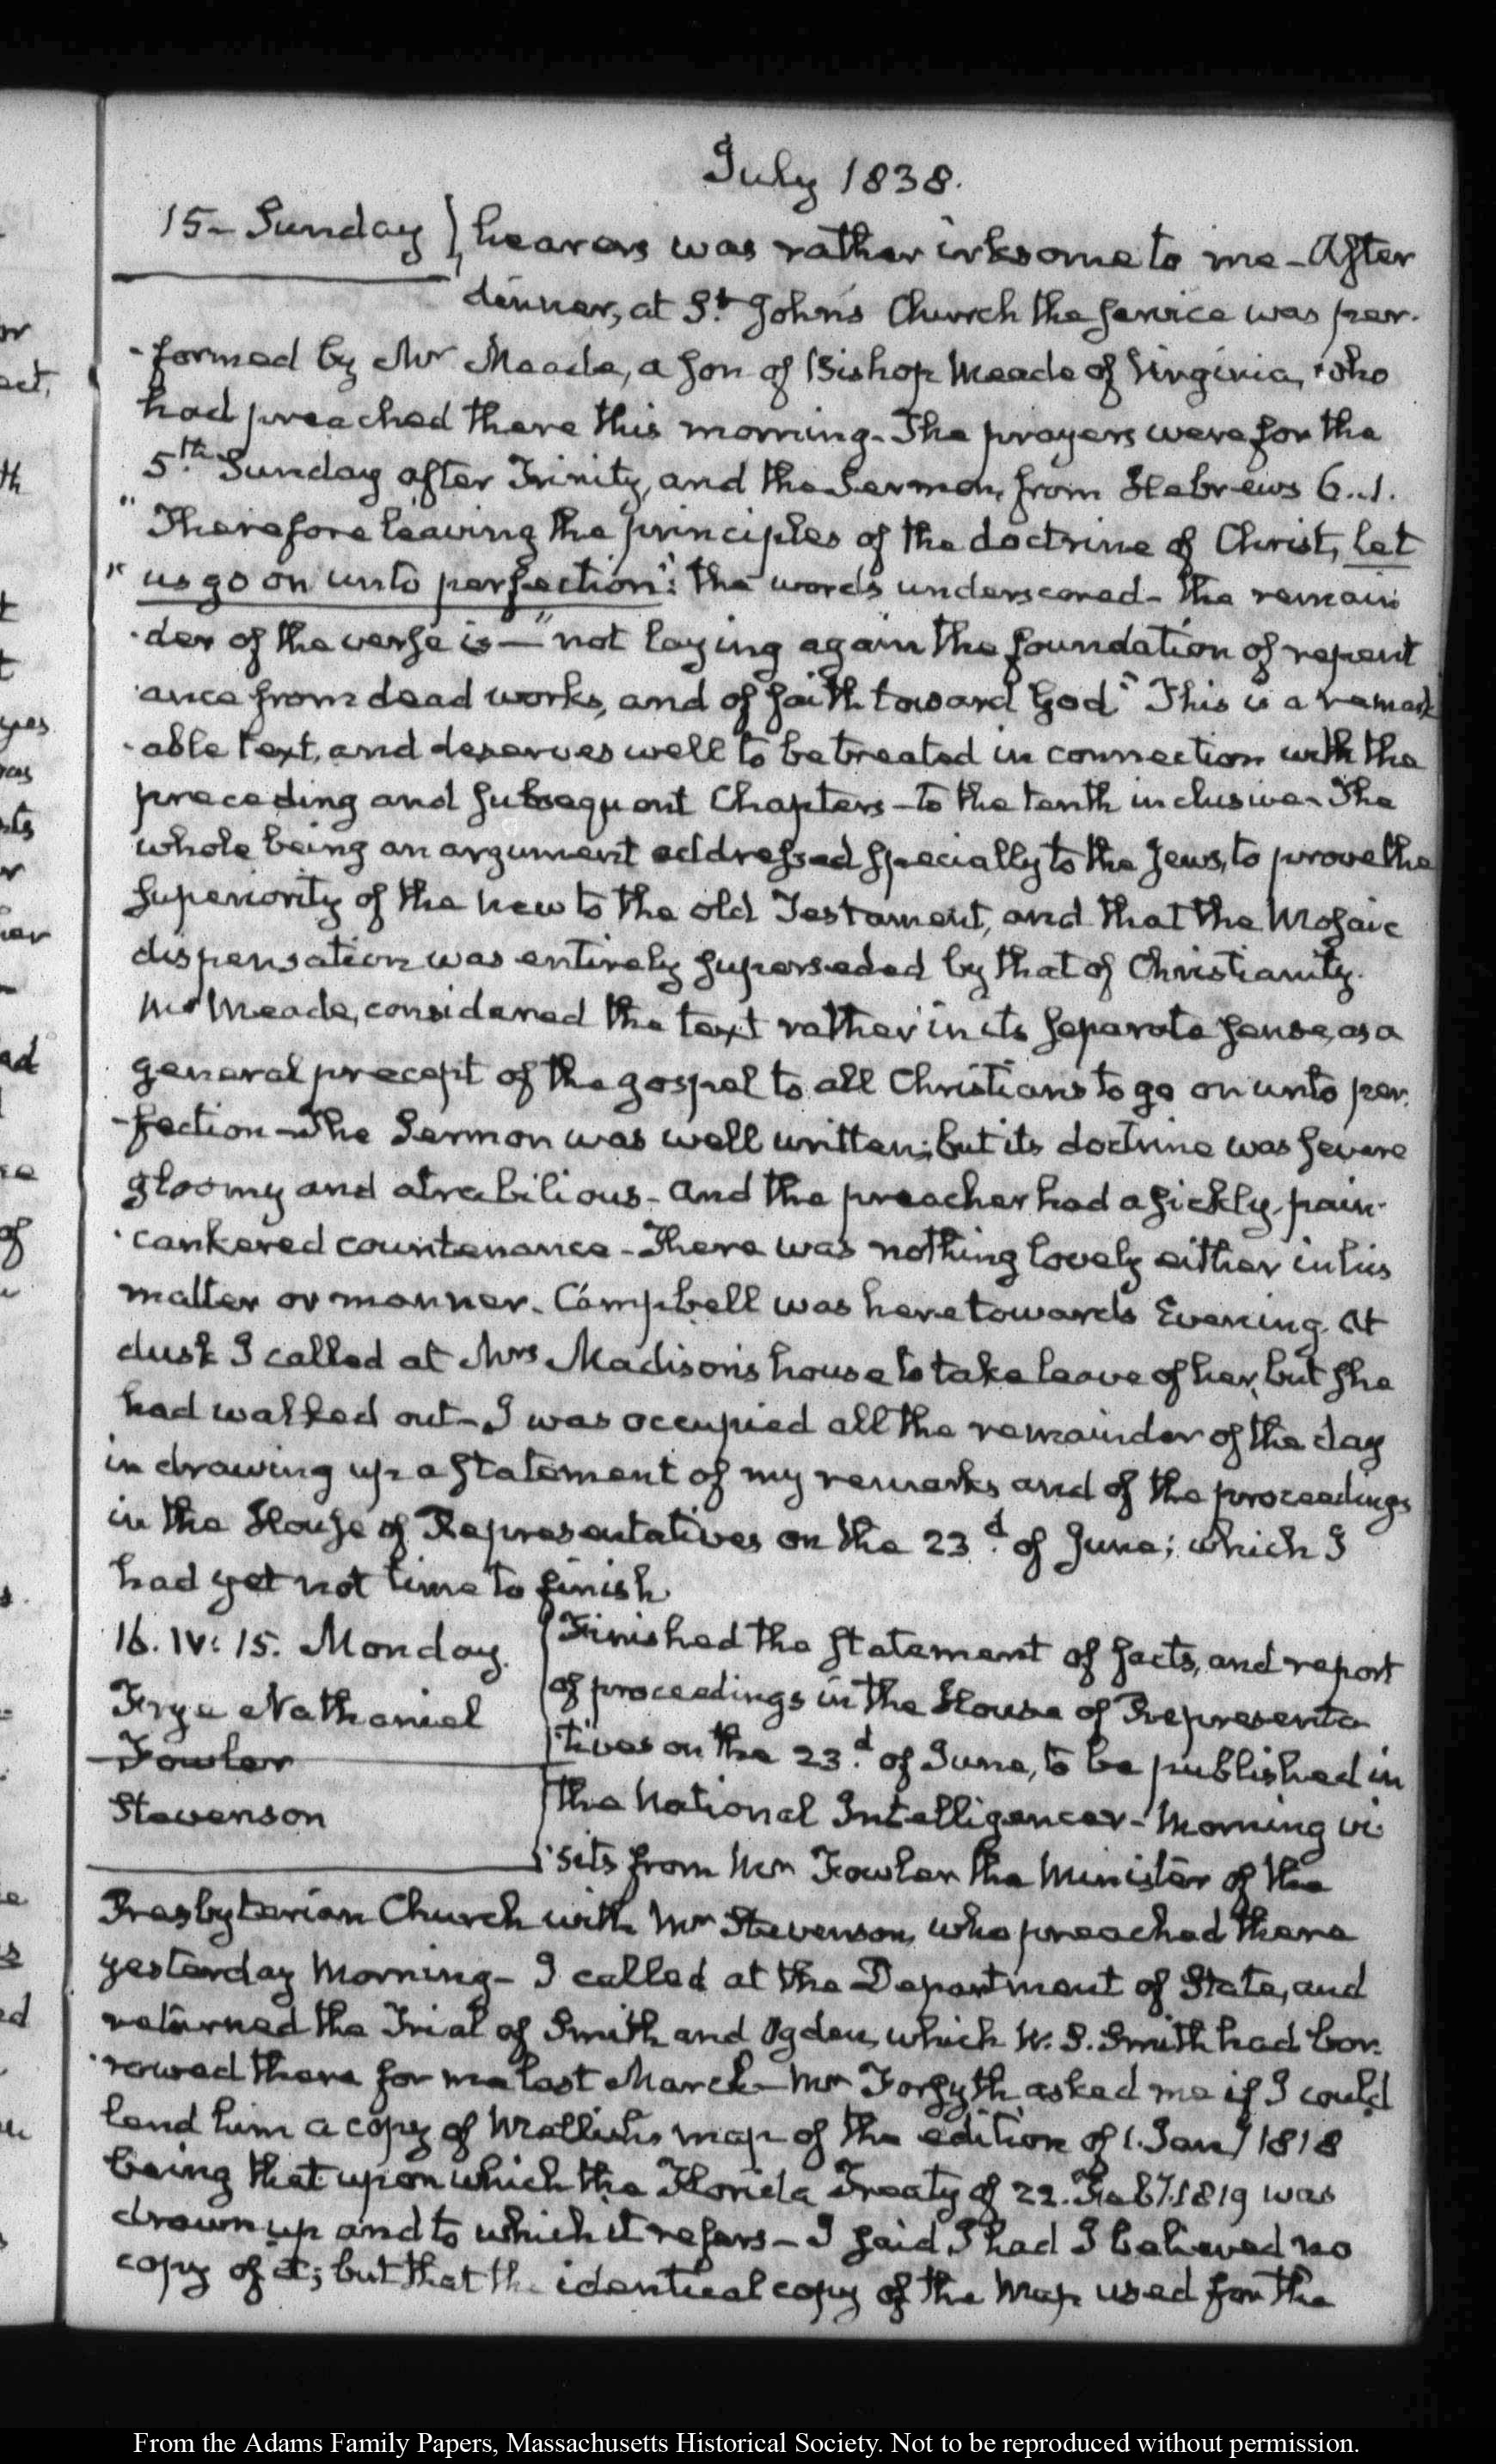 July 1838.
15- Sunday } hearers was rather irksome to me - After
dinner, at St. John's Church the service was per-
-formed by Mr Meade, a son of Bishop Meade of Virginia, who
had preached there this morning. The prayers were for the
5th. Sunday after Trinity, and the Sermon, from Hebrews 6..1.
"Therefore leaving the principles of the doctrine of Christ, let
"us go on unto perfection": the words underscored - the remain
-der of the verse is - "not laying again the foundation of repent
-ance from dead works, and of faith toward God" This is a remark
-able text, and deserves well to be treated in connection with the
preceding and subsequent Chapters - to the tenth inclusive - The
whole being an argument addressed specially to the Jews, to prove the
superiority of the new to the old Testament, and that the Mosaic
dispensation was entirely superseded by that of Christianity.
Mr Meade, considered the text rather in its separate sense, as a
general precept of the gospel to all Christians to go on unto per-
-fection - The Sermon was well written; but its doctrine was severe
gloomy and atrabilious - and the preacher had a sickly, pain-
-cankered countenance - There was nothing lovely either in his
matter or manner. Campbell was here towards Evening. At
dusk I called at Mrs Madison's house to take leave of her, but she
had walked out - I was occupied all the remainder of the day
in drawing up a statement of my remarks and of the proceedings
in the House of Representatives on the 23d. of June; which I
had yet not time to finish.
16. IV: 15. Monday.
Frye Nathaniel
Fowler
Stevenson
Finished the statement of facts, and report
of proceedings in the House of Representa
-tives on the 23d. of June, to be published in
the National Intelligencer - Morning vi
-sits from Mr Fowler the Minister of the
Presbyterian Church with Mr Stevenson, who preached there
yesterday Morning - I called at the Department of State, and
returned the Trial of Smith and Ogden, which W. S. Smith had bor-
-rowed there for me last March - Mr Forsyth asked me if I could
lend him a copy of Mellish's map of the edition of 1. Jany 1818
being that upon which the Florida Treaty of 22. Feby. 1819 was
drawn up and to which it refers - I said I had I believed no
copy of it; but that the identical copy of the Map used for the
From the Adams Family Papers, Massachusetts Historical Society. Not to be reproduced without permission.